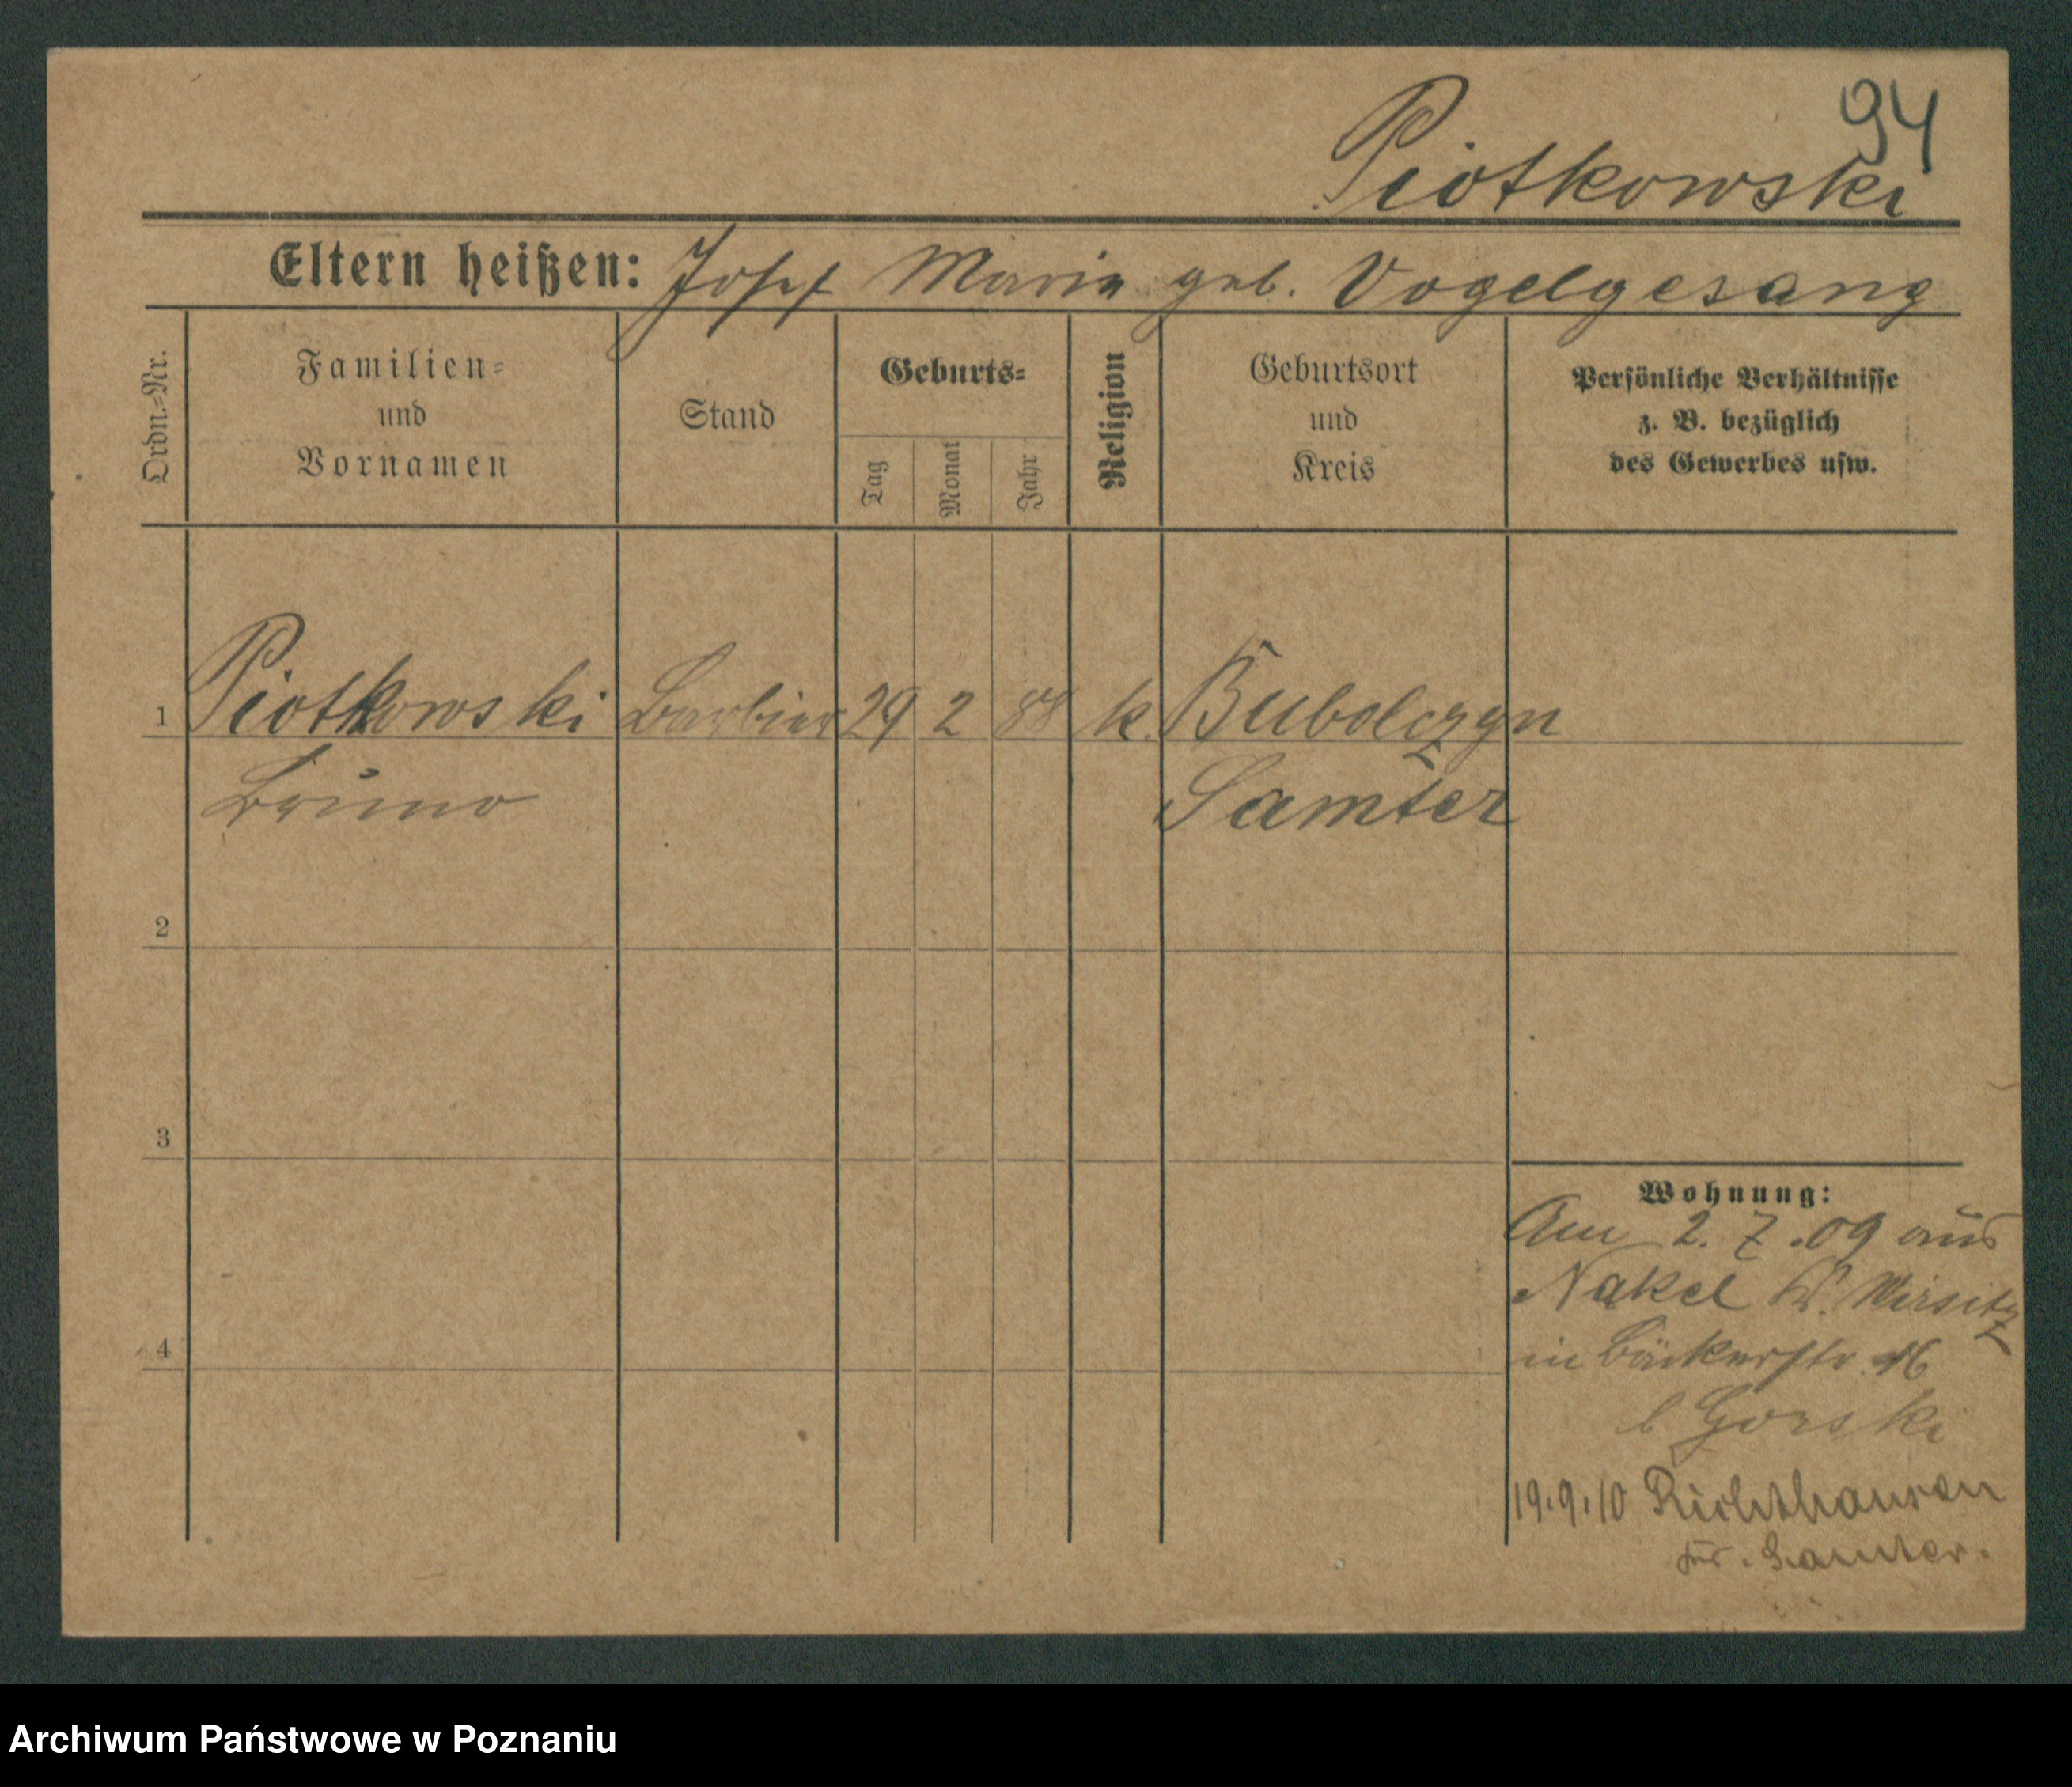 94
Piotkowski
Eltern heißen: Josef Marie geb. Vogelgesang
Ordn.-Nr.
Familien-
und
Vornamen
Stand
Geburts-
Tag
Monat
Jahr
Religion
Geburtsort
und
Kreis
Persönliche Verhältnisse
z. B. bezüglich
des Gewerbes usw.
1 Piotkowski Barbier 29 2 88 k. Bubolczyn
Bruno Samter
2
3
4
Wohnung:
Am 2.7.09 aus
Nakel K. Wirsitz
in Bäckerstr. 16
b Gorski
19.9.10 Richthausen
Kr. Samter.
Archiwum Państwowe w Poznaniu